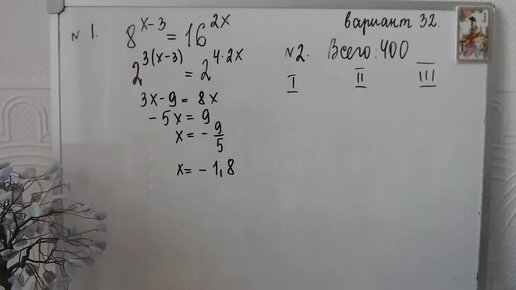 вариант 32.
№ 1.
8^{x-3} = 16^{2x}
2^{3(x-3)} = 2^{4·2x}
3x-9 = 8x
-5x = 9
x = -9/5
x = -1,8
№2. Всего: 400
I II III